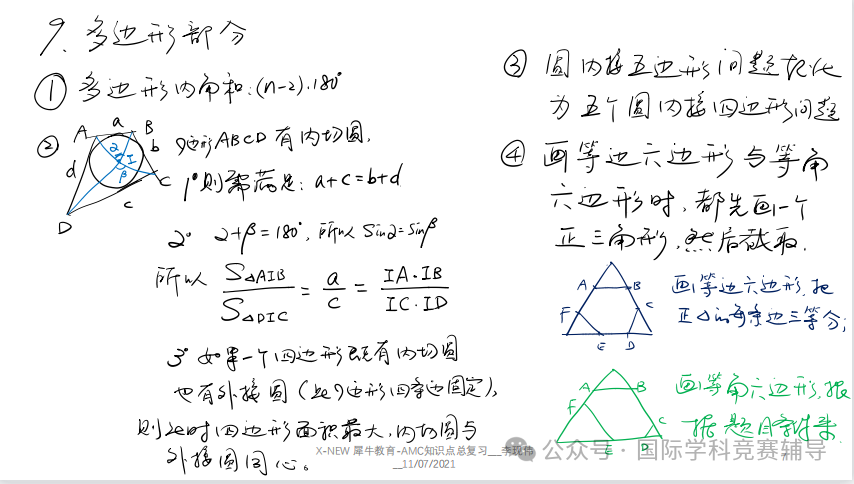 9. 多边形部分
① 多边形内角和:(n-2)·180°
② 四边形ABCD 有内切圆,
A a B
b
d
I
α
β
C
c
D
1° 则需满足: a+c=b+d
2° α+β=180°, 所以 sinα=sinβ
所以 S△AIB / S△DIC = a / c = IA·IB / IC·ID
3° 如果一个四边形既有内切圆
也有外接圆 (此四边形四条边固定),
则此时四边形面积最大, 内切圆与
外接圆同心。
③ 圆内接五边形问题转化
为五个圆内接四边形问题
④ 画等边六边形与等角
六边形时, 都先画一个
正三角形, 然后截取.
A B
F C
E D
画等边六边形, 把
正△的每条边三等分;
A B
F C
E D
画等角六边形, 根
据题目条件来.
X-NEW 犀牛教育-AMC知识点总复习__李现伟
__11/07/2021
公众号·国际学科竞赛辅导